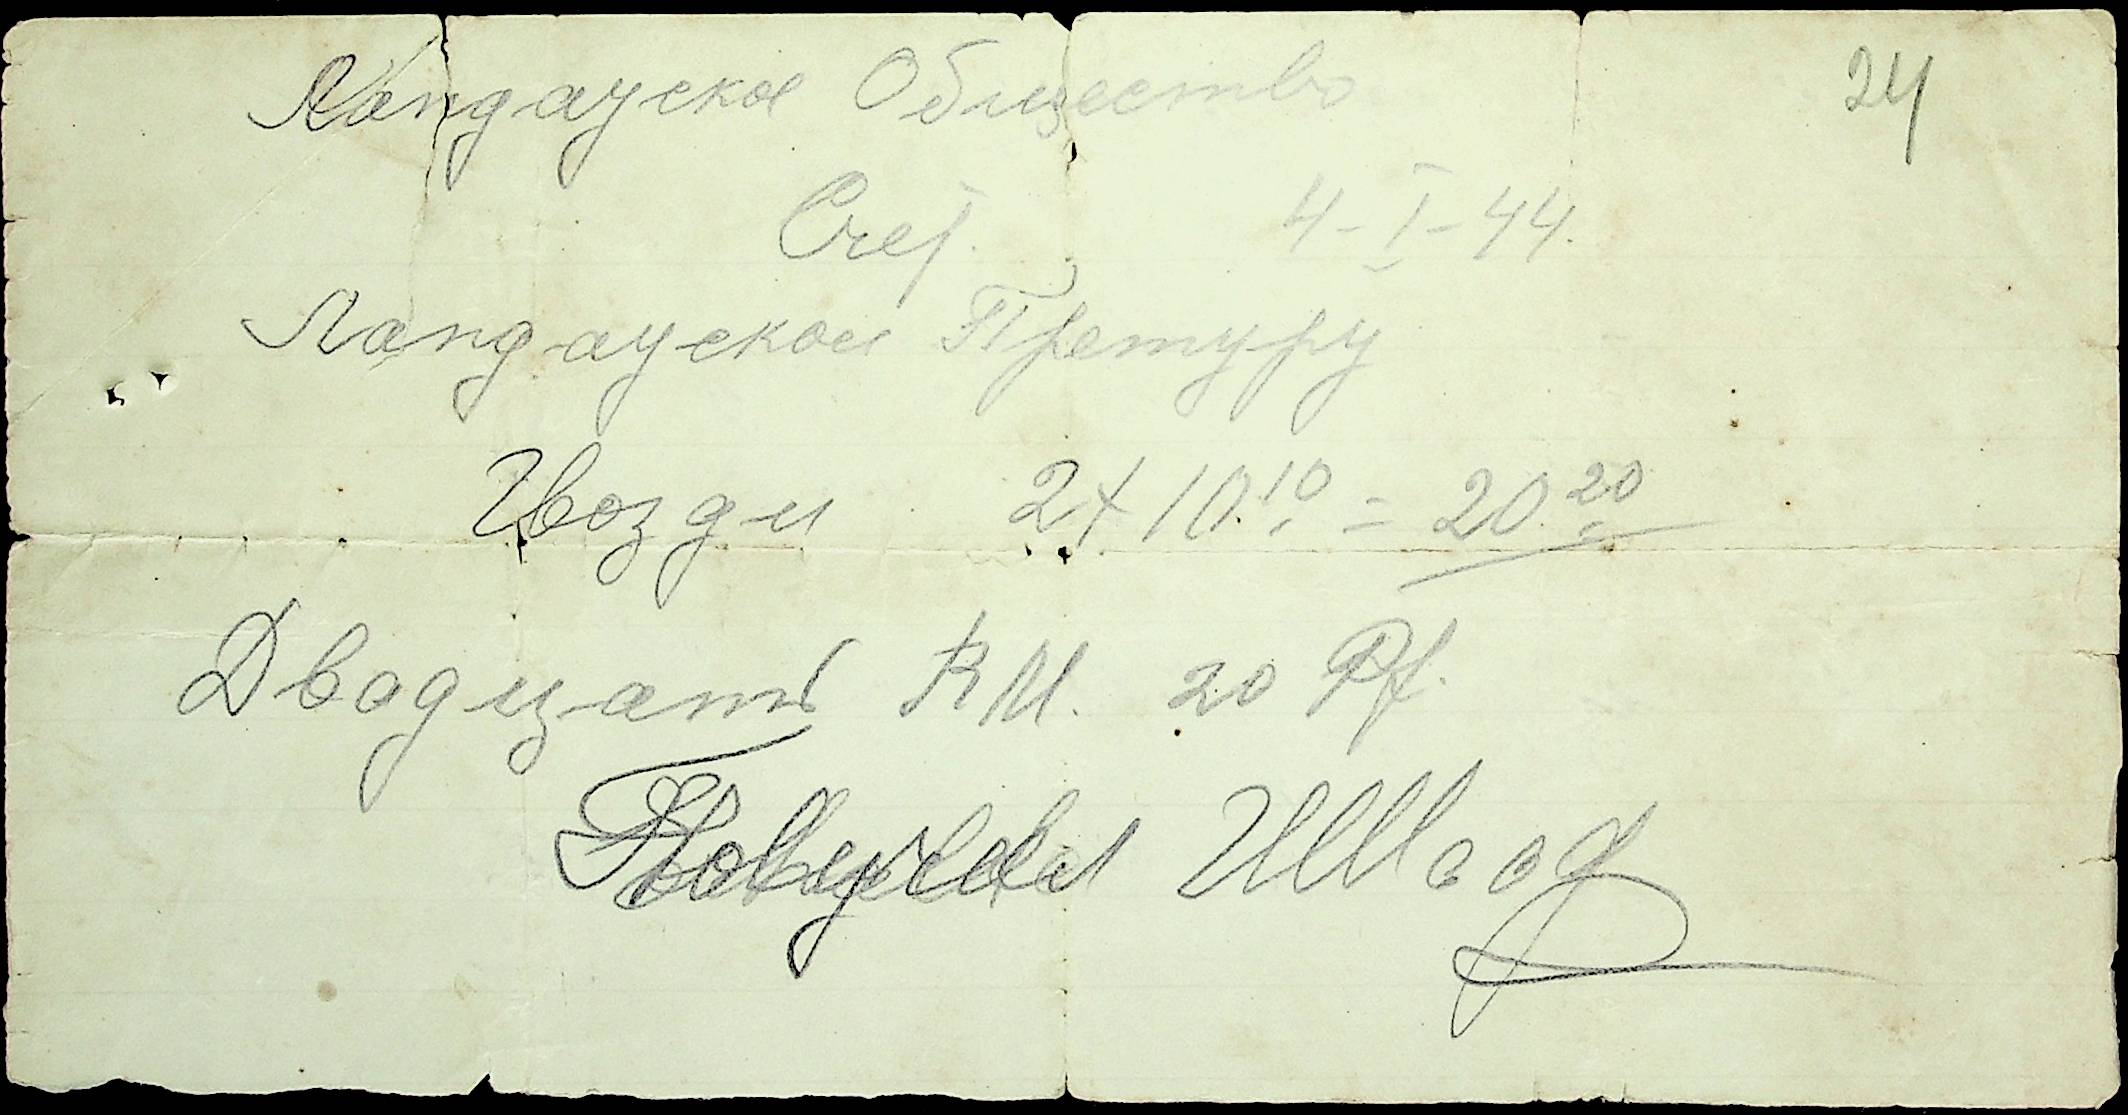 Ландауское Общество 24
Счет. 4-I-44.
Ландауской Претуру
Гвозди 2 х 10.10 = 20.20
Двадцать RM. 20 Pf.